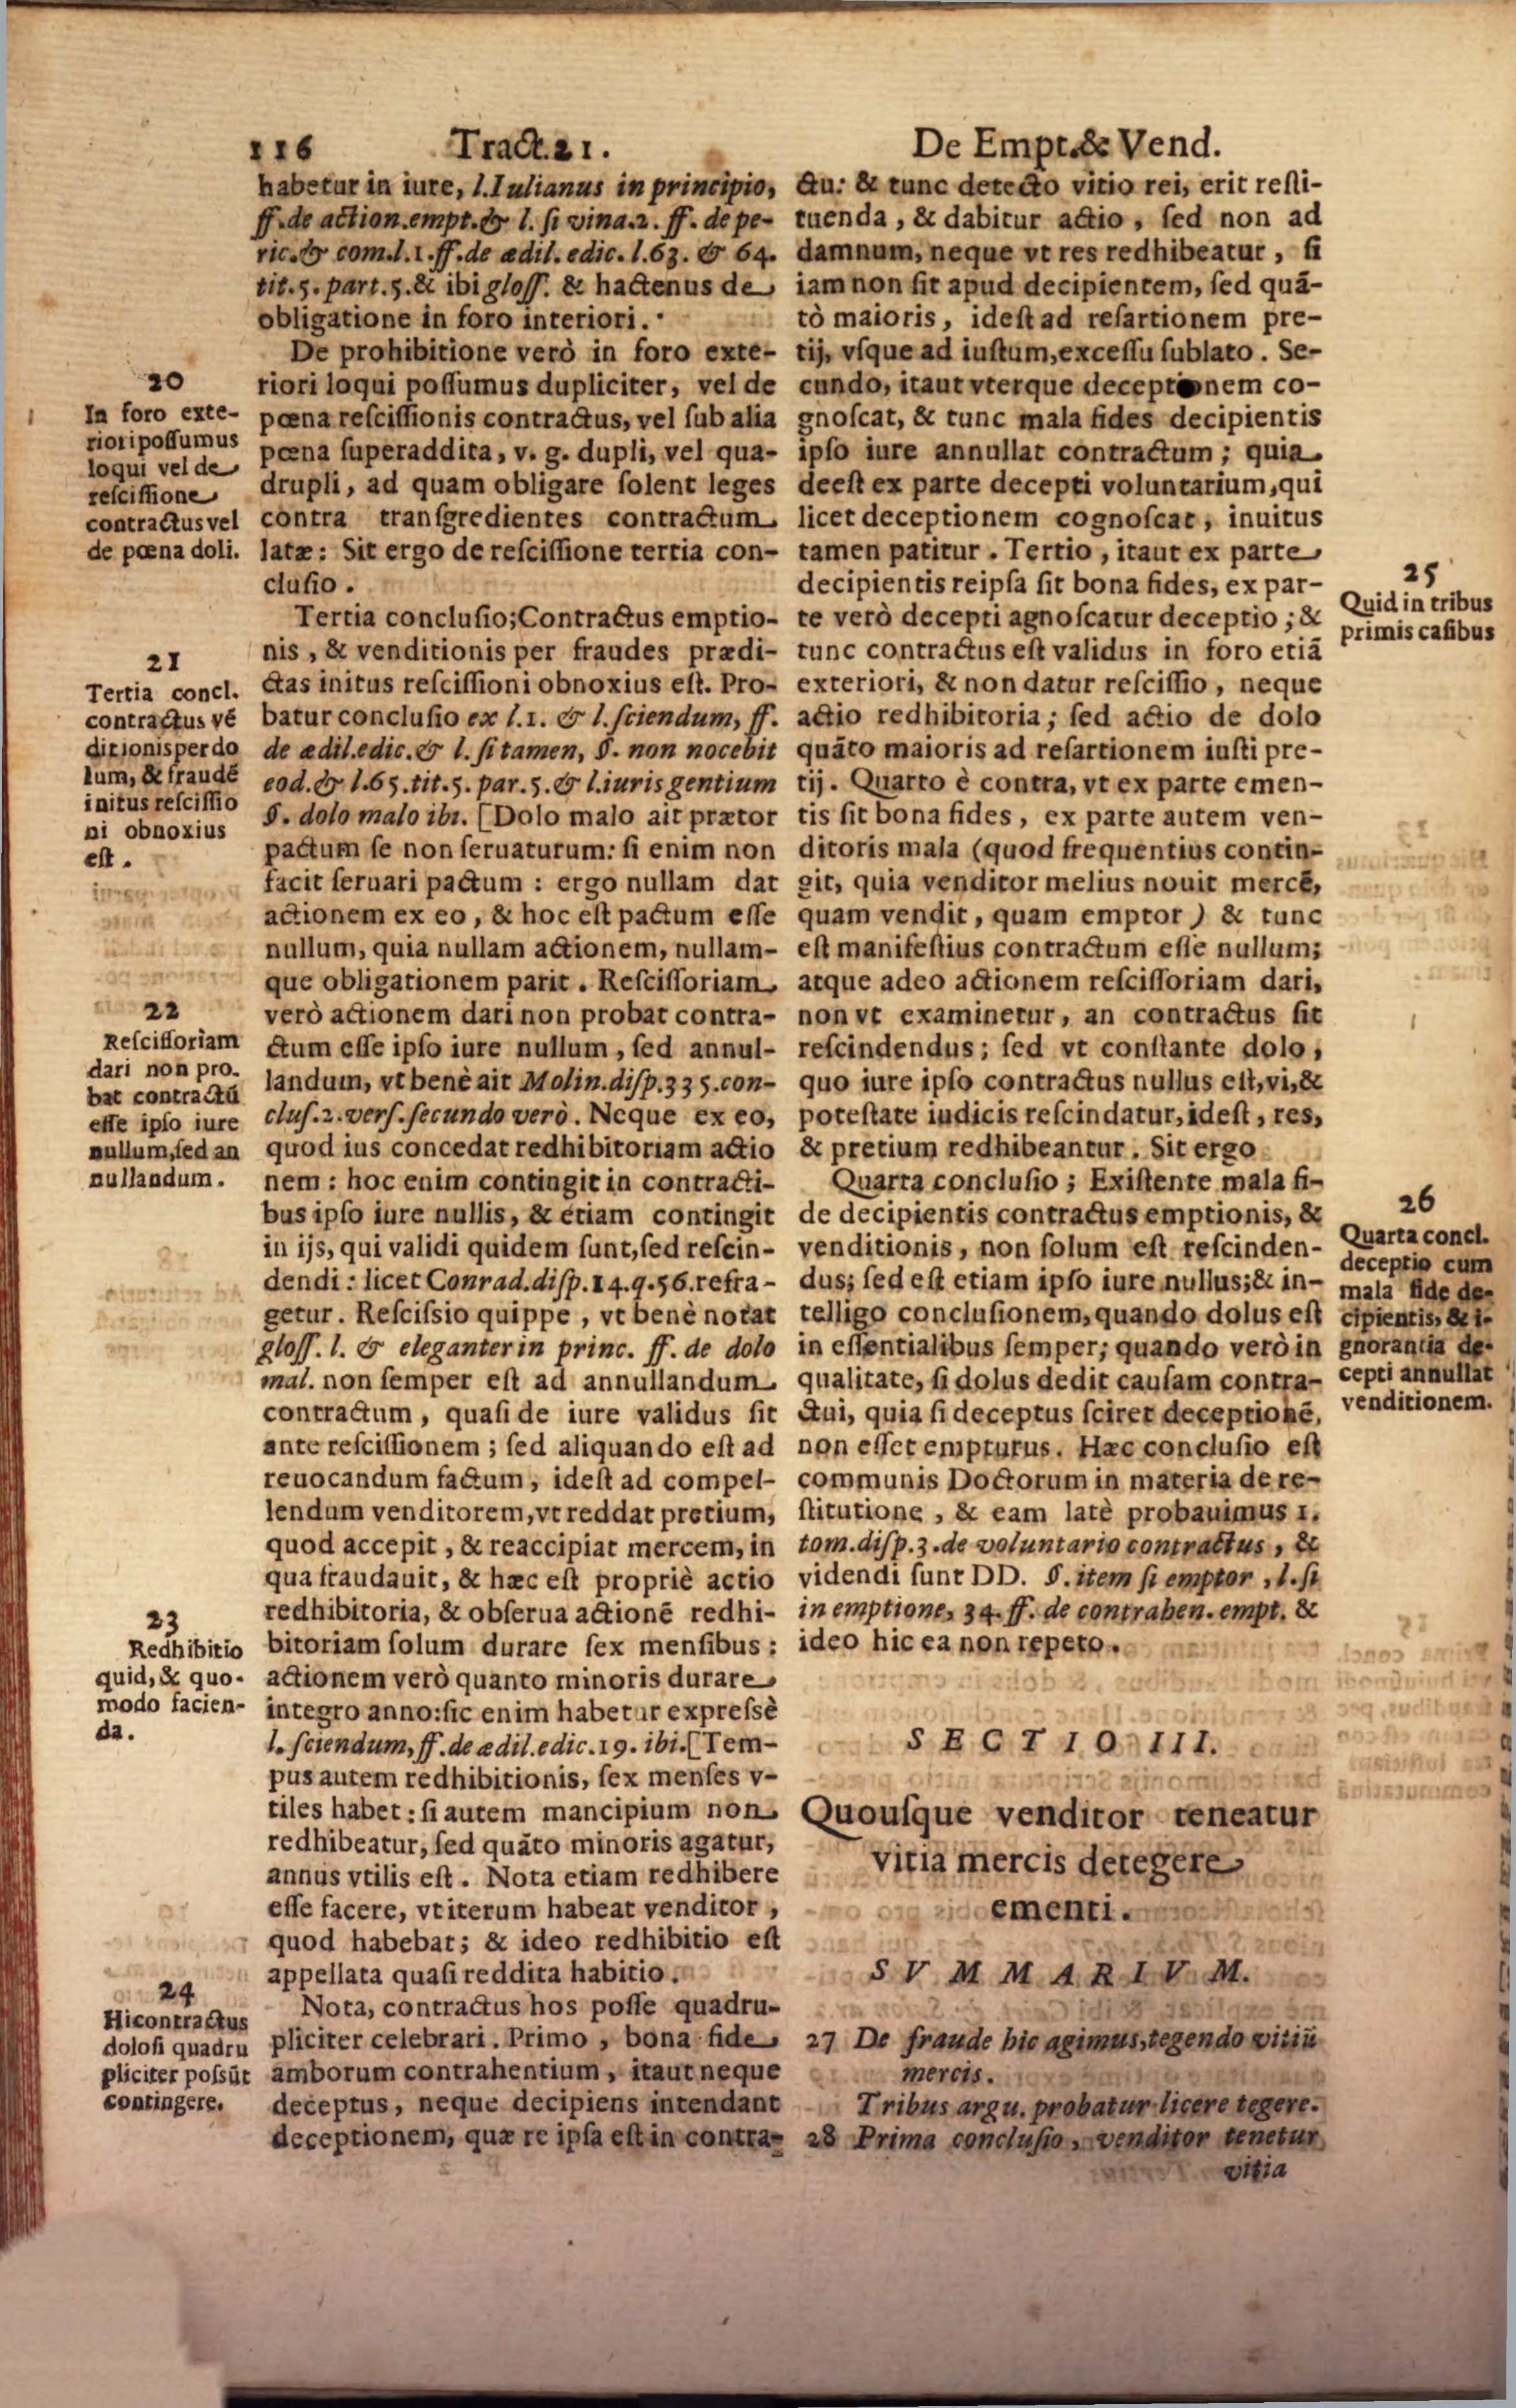 116 Tract.21. De Empt.& Vend.
habetur in iure, l.Iulianus in principio,
ff.de action.empt.& l. ſi vina.2. ff. de pe-
ric.& com.l.1.ff.de ædil. edic. l.63. & 64.
tit.5. part.5.& ibi gloſſ. & hactenus de
obligatione in foro interiori.
De prohibitione verò in foro exte-
riori loqui poſſumus dupliciter, vel de
pœna reſciſſionis contractus, vel ſub alia
pœna ſuperaddita, v. g. dupli, vel qua-
drupli, ad quam obligare ſolent leges
contra tranſgredientes contractum
latæ: Sit ergo de reſciſſione tertia con-
cluſio.
Tertia concluſio;Contractus emptio-
nis, & venditionis per fraudes prædi-
ctas initus reſciſſioni obnoxius eſt. Pro-
batur concluſio ex l.1. & l. ſciendum, ff.
de ædil.edic.& l. ſi tamen, §. non nocebit
eod.& l.65.tit.5. par.5.& l.iuris gentium
§. dolo malo ibi. [Dolo malo ait prætor
pactum ſe non ſeruaturum: ſi enim non
facit ſeruari pactum : ergo nullam dat
actionem ex eo, & hoc eſt pactum eſſe
nullum, quia nullam actionem, nullam-
que obligationem parit. Reſciſſoriam
verò actionem dari non probat contra-
ctum eſſe ipſo iure nullum, ſed annul-
landum, vt benè ait Molin.diſp.335.con-
cluſ.2.verſ.ſecundo verò. Neque ex eo,
quod ius concedat redhibitoriam actio
nem : hoc enim contingit in contracti-
bus ipſo iure nullis, & etiam contingit
in ijs, qui validi quidem ſunt,ſed reſcin-
dendi : licet Conrad.diſp.14.q.56.refra-
getur. Reſciſsio quippe, vt benè notat
gloſſ. l. & eleganter in princ. ff. de dolo
mal. non ſemper eſt ad annullandum
contractum, quaſi de iure validus ſit
ante reſciſſionem ; ſed aliquando eſt ad
reuocandum factum, ideſt ad compel-
lendum venditorem,vt reddat pretium,
quod accepit, & reaccipiat mercem, in
qua fraudauit, & hæc eſt propriè actio
redhibitoria, & obſerua actionē redhi-
bitoriam ſolum durare ſex menſibus :
actionem verò quanto minoris durare
integro anno:ſic enim habetur expreſsè
l. ſciendum, ff.de ædil.edic.19. ibi.[Tem-
pus autem redhibitionis, ſex menſes v-
tiles habet : ſi autem mancipium non
redhibeatur, ſed quāto minoris agatur,
annus vtilis eſt. Nota etiam redhibere
eſſe facere, vt iterum habeat venditor,
quod habebat; & ideo redhibitio eſt
appellata quaſi reddita habitio.
Nota, contractus hos poſſe quadru-
pliciter celebrari. Primo, bona fide
amborum contrahentium, itaut neque
deceptus, neque decipiens intendant
deceptionem, quæ re ipſa eſt in contra-
20
In foro exte-
riori poſſumus
loqui vel de
reſciſſione
contractus vel
de pœna doli.
21
Tertia concl.
contractus vē
ditionis per do
lum, & fraudē
initus reſciſſio
ni obnoxius
eſt.
22
Reſciſſoriam
dari non pro.
bat contractū
eſſe ipſo iure
nullum,ſed an
nullandum.
23
Redhibitio
quid, & quo-
modo facien-
da.
24
Hi contractus
doloſi quadru
pliciter poſsūt
contingere.
ctu: & tunc detecto vitio rei, erit reſti-
tuenda, & dabitur actio, ſed non ad
damnum, neque vt res redhibeatur, ſi
iam non ſit apud decipientem, ſed quā-
tò maioris, ideſt ad reſartionem pre-
tij, vſque ad iuſtum,exceſſu ſublato. Se-
cundo, itaut vterque deceptionem co-
gnoſcat, & tunc mala fides decipientis
ipſo iure annullat contractum ; quia
deeſt ex parte decepti voluntarium,qui
licet deceptionem cognoſcat, inuitus
tamen patitur. Tertio, itaut ex parte
decipientis reipſa ſit bona fides, ex par-
te verò decepti agnoſcatur deceptio ; &
tunc contractus eſt validus in foro etiā
exteriori, & non datur reſciſſio, neque
actio redhibitoria ; ſed actio de dolo
quāto maioris ad reſartionem iuſti pre-
tij. Quarto è contra, vt ex parte emen-
tis ſit bona fides, ex parte autem ven-
ditoris mala (quod frequentius contin-
git, quia venditor melius nouit mercē,
quam vendit, quam emptor) & tunc
eſt manifeſtius contractum eſſe nullum;
atque adeo actionem reſciſſoriam dari,
non vt examinetur, an contractus ſit
reſcindendus ; ſed vt conſtante dolo,
quo iure ipſo contractus nullus eſt,vi,&
poteſtate iudicis reſcindatur, ideſt, res,
& pretium redhibeantur. Sit ergo
Quarta concluſio ; Exiſtente mala fi-
de decipientis contractus emptionis, &
venditionis, non ſolum eſt reſcinden-
dus; ſed eſt etiam ipſo iure nullus;& in-
telligo concluſionem,quando dolus eſt
in eſſentialibus ſemper; quando verò in
qualitate, ſi dolus dedit cauſam contra-
ctui, quia ſi deceptus ſciret deceptionē,
non eſſet empturus. Hæc concluſio eſt
communis Doctorum in materia de re-
ſtitutione, & eam latè probauimus 1.
tom.diſp.3.de voluntario contractus, &
videndi ſunt DD. §.item ſi emptor, l. ſi
in emptione, 34. ff. de contrahen. empt. &
ideo hic ea non repeto.
SECTIO III.
Quouſque venditor teneatur
vitia mercis detegere
ementi.
SVMMARIVM.
27 De fraude hic agimus,tegendo vitiū
mercis.
Tribus argu. probatur licere tegere.
28 Prima concluſio, venditor tenetur
vitia
25
Quid in tribus
primis caſibus
26
Quarta concl.
deceptio cum
mala fide de-
cipientis, & i-
gnorantia de-
cepti annullat
venditionem.